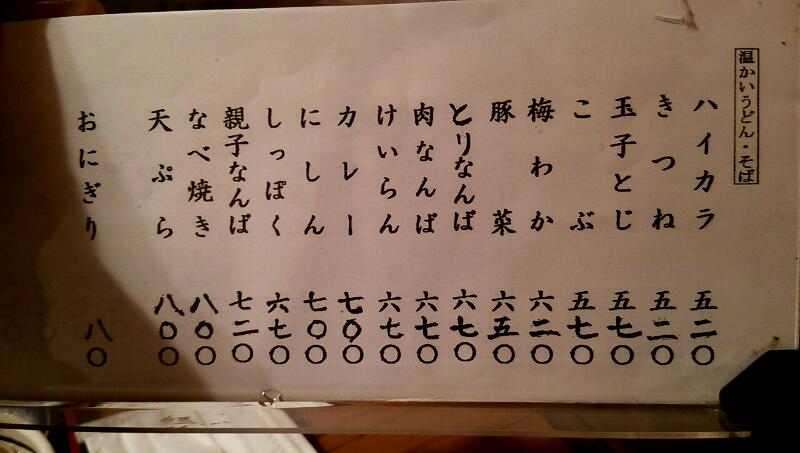 温かいうどん・そば
ハイカラ 五二〇
きつね 五二〇
玉子とじ 五七〇
こぶ 五七〇
梅わか 六二〇
豚菜 六五〇
とりなんば 六七〇
肉なんば 六七〇
けいらん 六七〇
カレー 七〇〇
にしん 七〇〇
しっぽく 六七〇
親子なんば 七二〇
なべ焼き 八〇〇
天ぷら 八〇〇
おにぎり 八〇